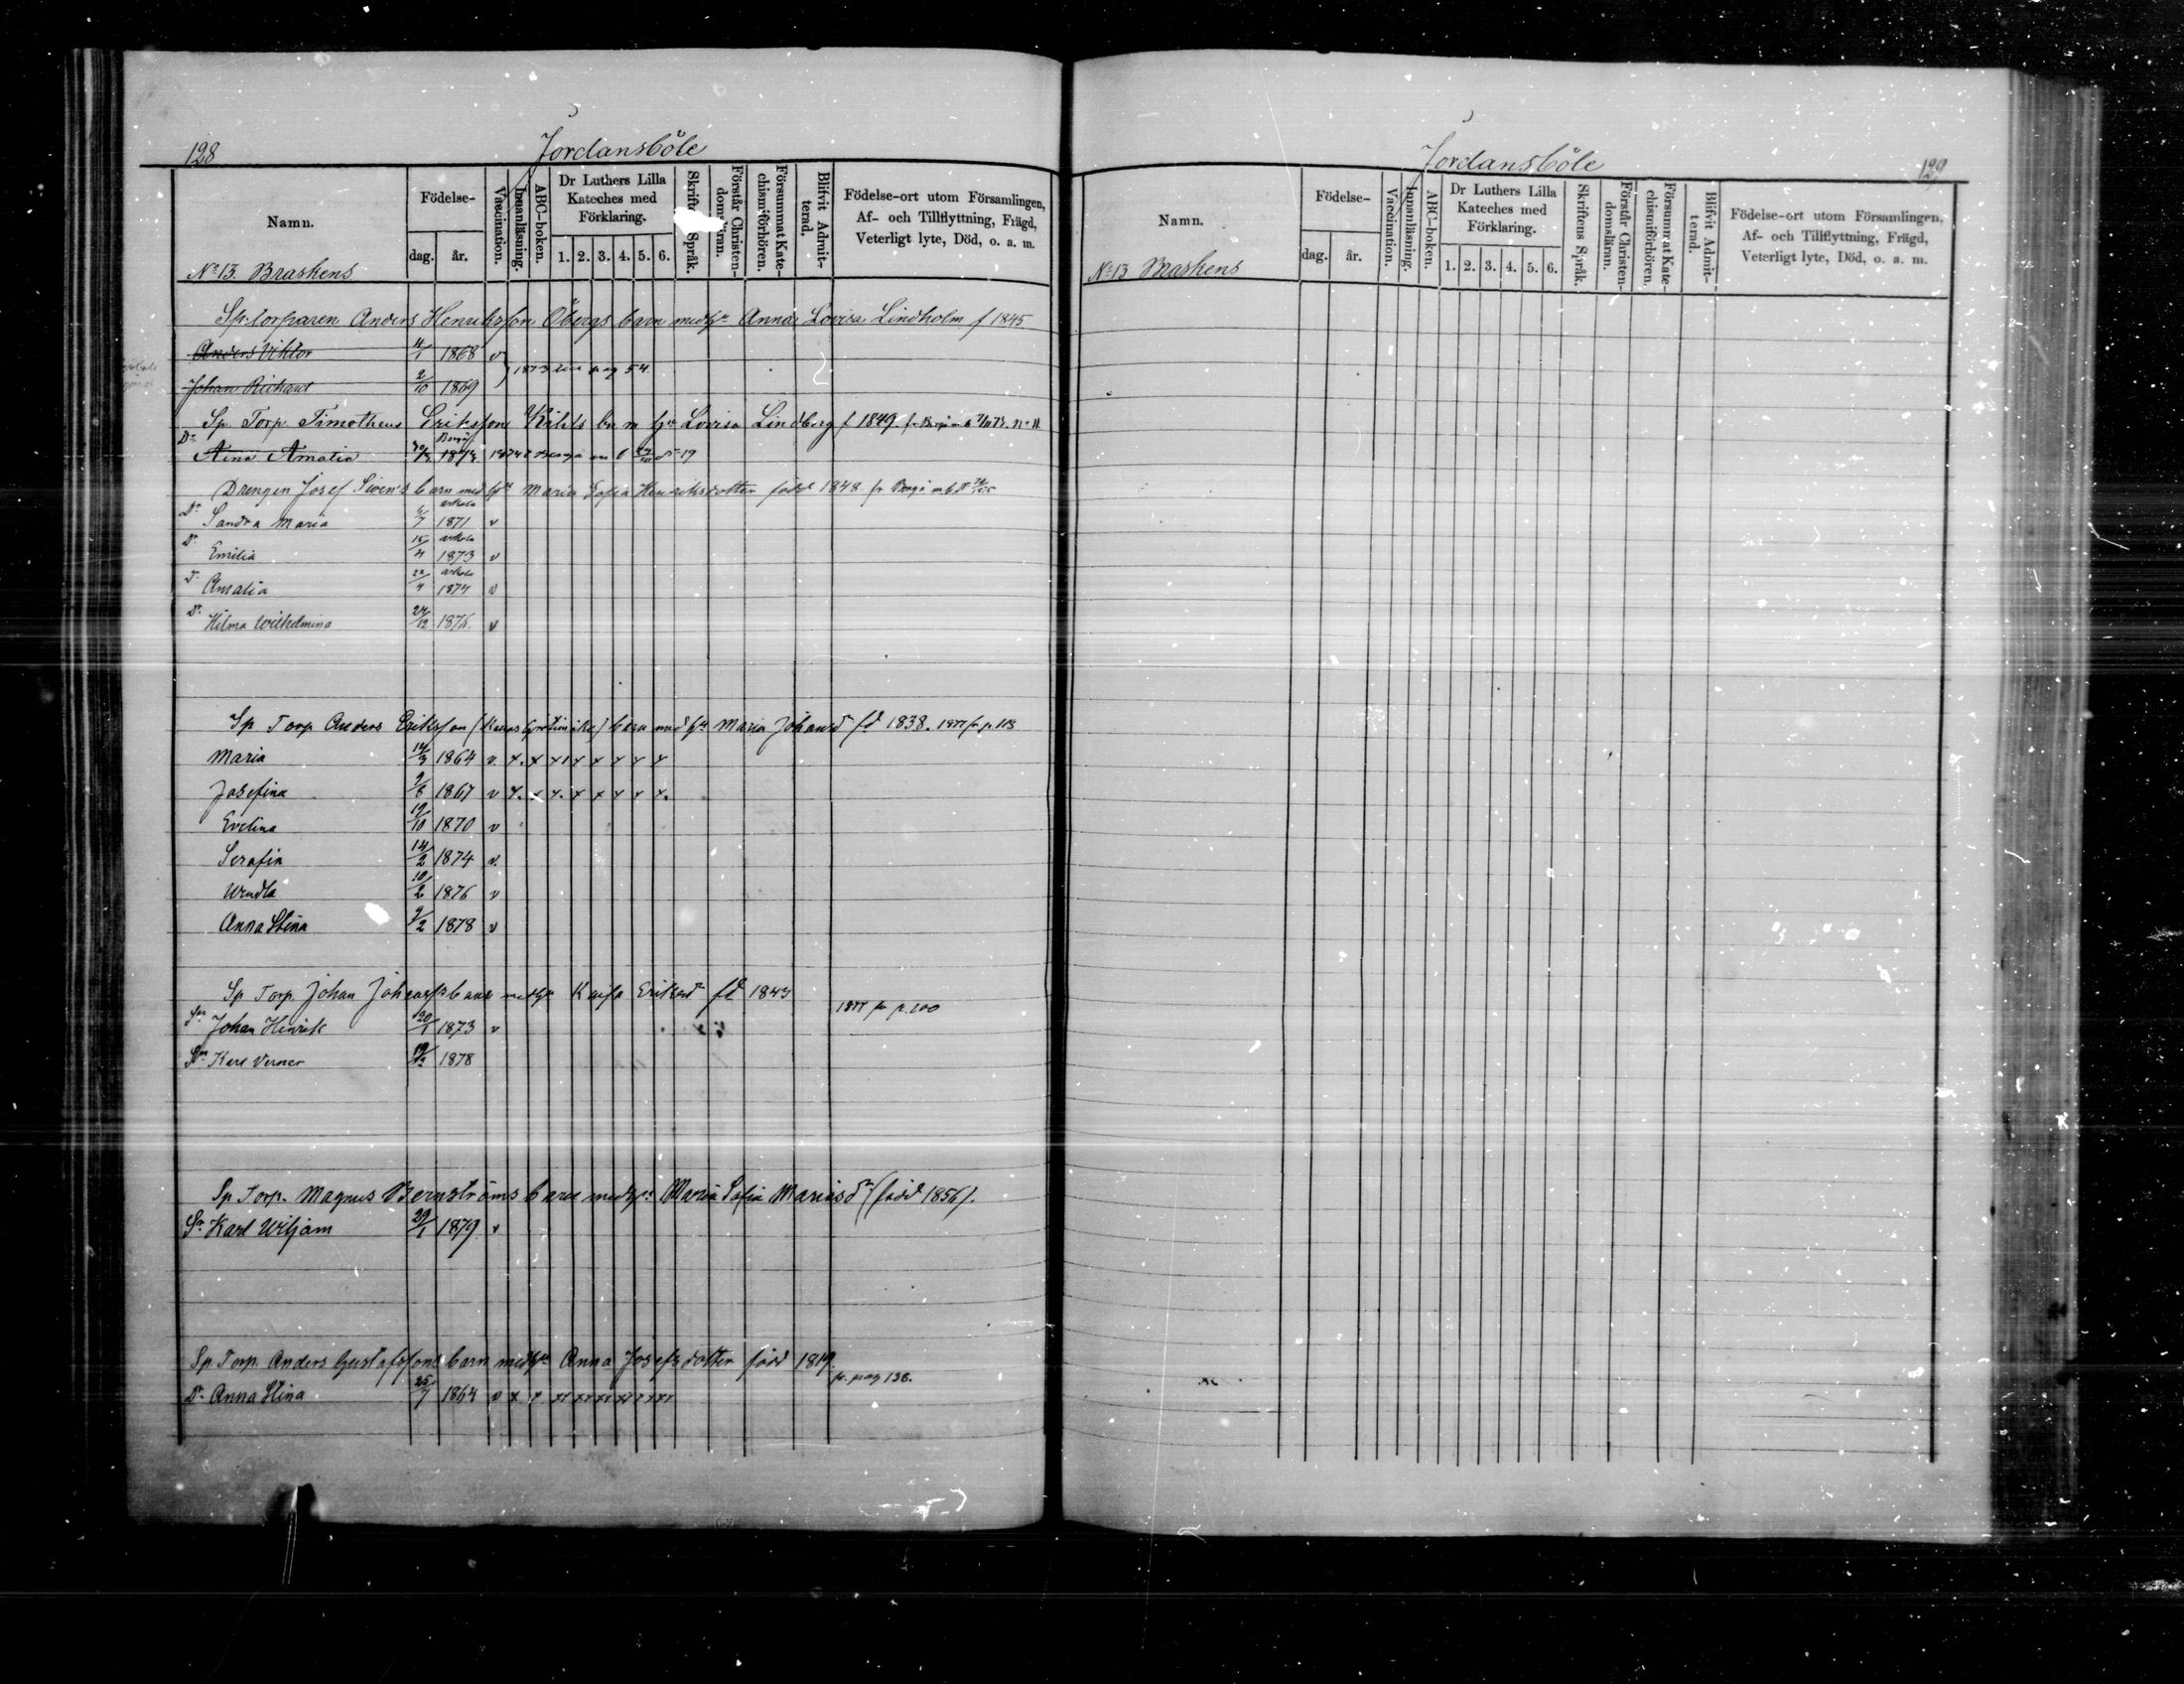 128
Jordansböle
Namn.
Födelse-
dag.
år.
Vaccination.
Innanläsning.
ABC-boken.
Dr Luthers Lilla Kateches med Förklaring.
1. 2. 3. 4. 5. 6.
Skriftens Språk.
Förstår Christendomsläran.
Försummat Katechismiförhören.
Blifvit Admitterad.
Födelse-ort utom Församlingen,
Af- och Tillflyttning, Frägd,
Veterligt lyte, Död, o. a. m.
No 13. Braskens
Sp. torparen Anders Henriksson Öbergs barn med hu Anna Lovisa Lindholm f 1845
Anders Viktor 11/1 1868 v
1873 pag 54
Johan Richard 2/10 1869
Sp Torp Timotheus Eriksson barn hu Lovisa Lindberg f 1849. fr Borgå No 11
Dr Aina Amalia Borgå 1873
Drengen Josef barn med hu Maria Sofia Henriksdotter född 1848 fr Borgå
Dr Sandra Maria 6/7 1871 v
Dr Emilia 15/4 1873 v
Dr Amalia 22/4 1874 v
Dr Hilma Wilhelmina 24/12 1876. v
Sp Torp Anders Eriksson barn med hu Maria Johansdr fd 1838. 1877 fr p. 113
Maria 14/3 1864 v. x. x x x x x x x
Josefina 9/8 1867 v x. x x. x x x x x.
Evelina 19/10 1870 v
Serafia 14/2 1874 v.
Wendla 10/2 1876 v
Anna Stina 9/2 1878 v
Sp Torp. Johan Johanss barn med hu Kajsa Eriksdr fd 1843
1877 fr p. 100
Sn Johan Henrik 20/1 1873 v
Sn Karl Verner 19/2 1878
Sp Torp. Magnus Bernströms barn med hu Maria Sofia Mariasdr (född 1856).
Sn Karl Wiljam 29/1 1879 v
Sp Torp. Anders Gustafssons barn med hu Anna Josefsdotter född 1819.
fr. pag 136.
Dr Anna Stina 25/7 1864 v x x xx xx xx xx x xx
Jordansböle
129
Namn.
Födelse-
dag.
år.
Vaccination.
Innanläsning.
ABC-boken.
Dr Luthers Lilla Kateches med Förklaring.
1. 2. 3. 4. 5. 6.
Skriftens Språk.
Förstår Christendomsläran.
Försummat Katechismiförhören.
Blifvit Admitterad.
Födelse-ort utom Församlingen,
Af- och Tillflyttning, Frägd,
Veterligt lyte, Död, o. a. m.
No 13 Braskens